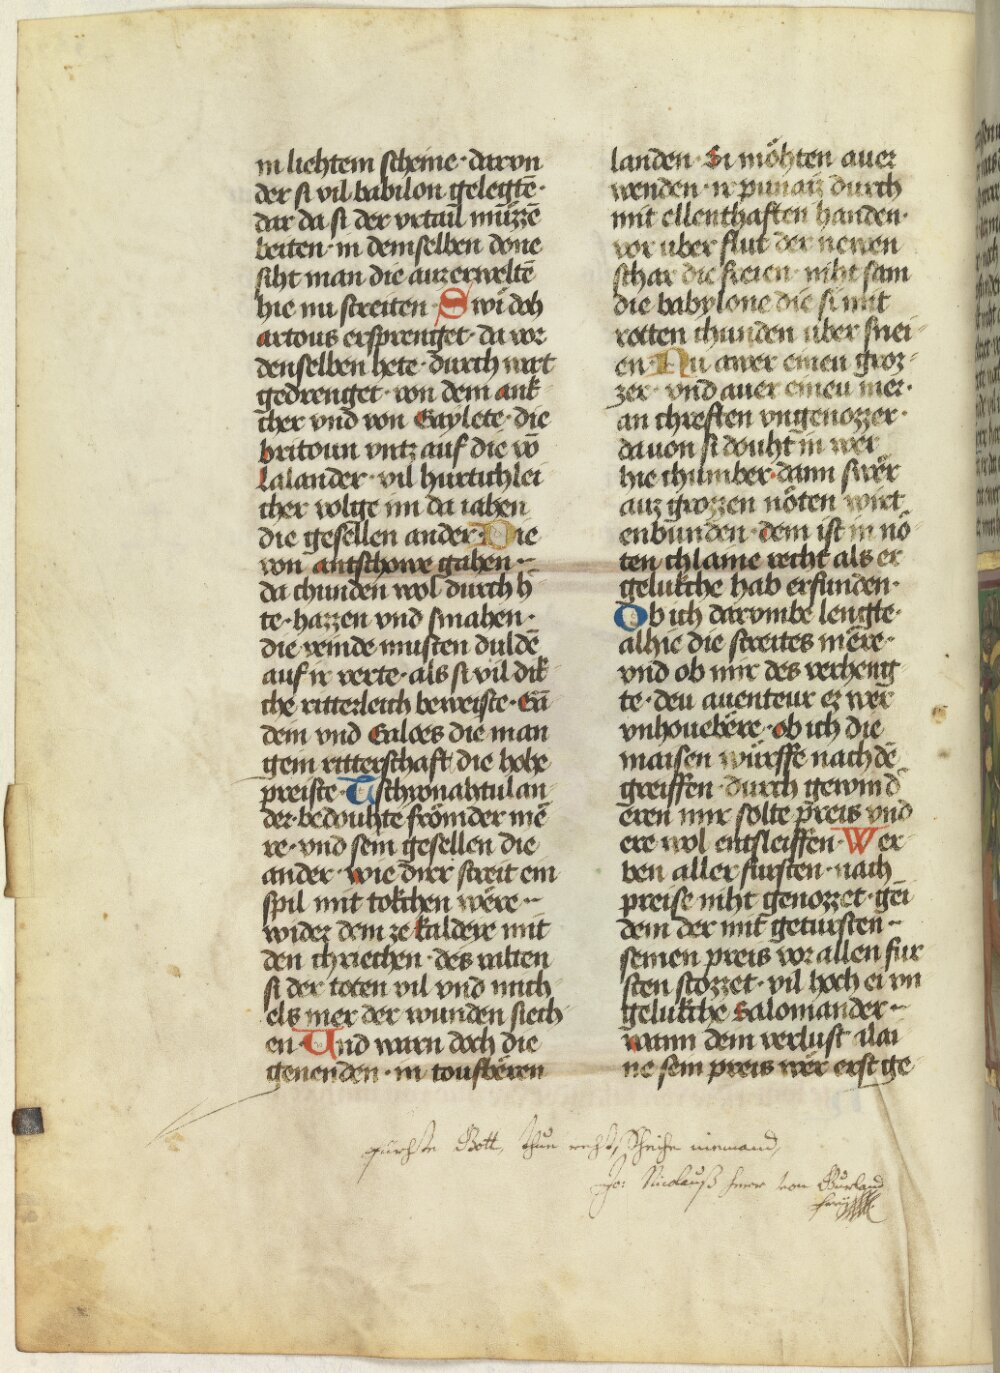 in liehtem scheine · daron
der si vil babilon gelegtē ·
dar da si der vrtail müzzē
beiten · in demselben done
siht man die auzerweltē
hie nu streiten · Swi doh
artous ersprenget · da vor
denselben hete · durch wrt
gedrenget · von dem ank
cher vnd von Gaylete · die
britoun vntz auf die vō
Lalander · vil hurtichlei
cher volge im da iahen
die gesellen ander · Die
von antschowe gahen ·
da chunden wol durch h
te · hazzen vnd smahen ·
die veinde musten duldē
auf ir verte · als si vil dik
che ritterleich beweiste · Gā
dem vnd Galoes die man
gem ritterschaft die hohe
preiste · Tschionahtulan
der · bedouhte frömder mē
re · vnd sein gesellen die
ander · wie dirr streit ein
spil mit tokchen wëre ·
wider dem ze kaldeye mit
den chriechen · des valten
si der toten vil vnd mich
els mer der wunden siech
en · Und warn doch die
genenden · in tousbëren
landen · Si möhten auer
wenden · ir punaiz durch
mit ellenthaften handen ·
vor uber flut der newen
schar die freien · niht sam
die babylone die si mit
rotten chunden uber snei
en · Nu awer eineu groz
zer · vnd auer eineu mer ·
an chreften vngenozzer ·
dauon si douht in wer
hie chumber · dann swër
auz grozzen nöten wirt
enbunden · dem ist in nö
ten chlaine recht als er
gelukche hab erfunden ·
Ob ich darombe lengte ·
alhie die streites mëre ·
vnd ob mir des verheng
te · deu auenteur ez wer
vnhouebëre · ob ich die
maisen würffe nach dē
greiffen · durch gewin d
eren mir solte preis vnd
ere wol entsleiffen · Wer
ben aller fursten · nach
preise niht genozzet · gei
dem der mit getursten ·
seinen preis vor allen fur
sten stozzet · vil hoch ei vn
gelukche Salomander ·
wann dem verlust alai
ne sein preis wër erst ge
Furchte Gott, thue recht, Scheihe niemand,
Jo: Nicolauß herr von